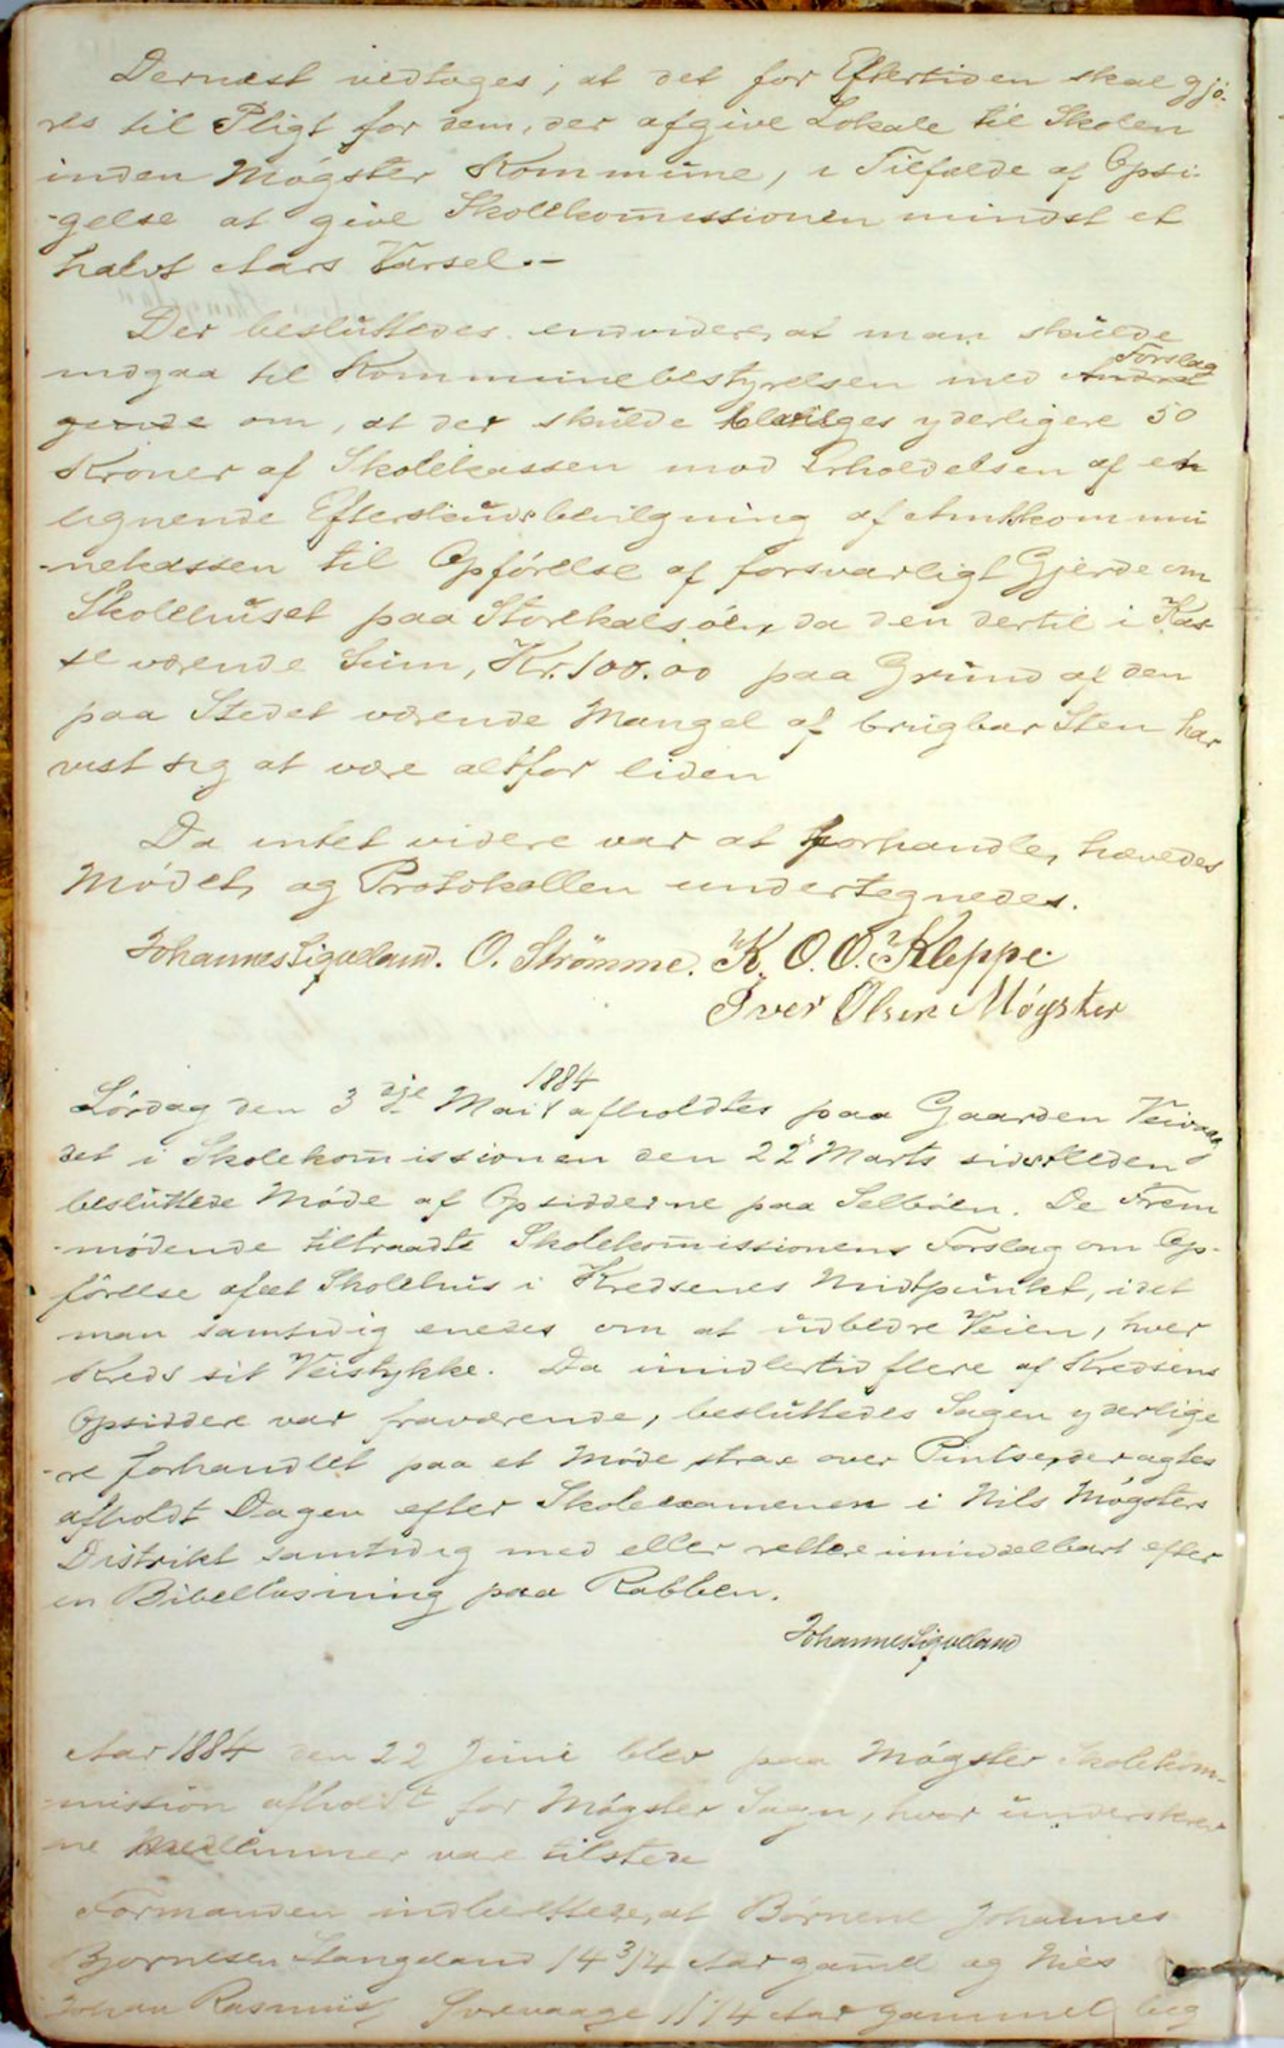 Dernæst vedtoges, at det for Eftertiden skal gjö-
res til Pligt for dem, der afgive Lokale til Skolen
inden Møgster Kommune, i Tilfælde af Opsi-
-gelse at give Skolekom̄issionen mindst et
halvt Aars Varsel.-
Der besluttedes endvidere, at man skulde
indgaa til Kommunebestyrelsen med Forslag
om, at der skulde bevilges yderligere 50
Kroner af Skolekassen mod Erholdelsen af en
lignende Efterskudsbevilgning af Amtskommu
-nekassen til Opførelse af forsvarligt Gjerde om
Skolehuset paa Storekalsöen, da den dertil i Kas-
se værende Sum, Kr. 100.00 paa Grund af den
paa Stedet værende Mangel af brugbar Sten har
vist sig at være altfor liden
Da intet videre var at forhandle, hævedes
Mødet, og Protokollen undertegnedes.
Johannes Sigveland. O. Strømme. K. O. O. Kleppe.
Iver Olsen Møgster
Lørdag den 3dje Mai 1884 afholdtes paa Gaarden
det i Skolekom̄issionen den 22 Marts sidstleden
besluttede Møde af Opsidderne paa Selbøen. De Frem
-mødende tiltraadte Skolekom̄issionens Forslag om Op-
førelse af et Skolehus i Kredsenes Midtpunkt, idet
man samtidig enedes om at udbedre Veien, hver
Kreds sit Veistykke. Da imidlertid flere af Kredsens
Opsiddere var fraværende, besluttedes Sagen yderlige
-re forhandlet paa et Møde strax over Pintse, der agtes
afholdt Dagen efter Skoleexamenen i Nils Møgsters
Distrikt samtidig med eller rettere umiddelbart efter
en Bibellæsning paa Rabben.
Johannes Sigveland
Aar 1884 den 22 Juni blev paa Møgster Skolekom-
-mission afholdt for Møgster Sogn, hvor underskrev
ne Medlemmer vare tilstede
Formanden indberettede, at Børnene Johannes
Bjørnesen Stangeland 14 3/4 Aar gam̄el og Nils
Johan Rasmus Aar gammel, beg